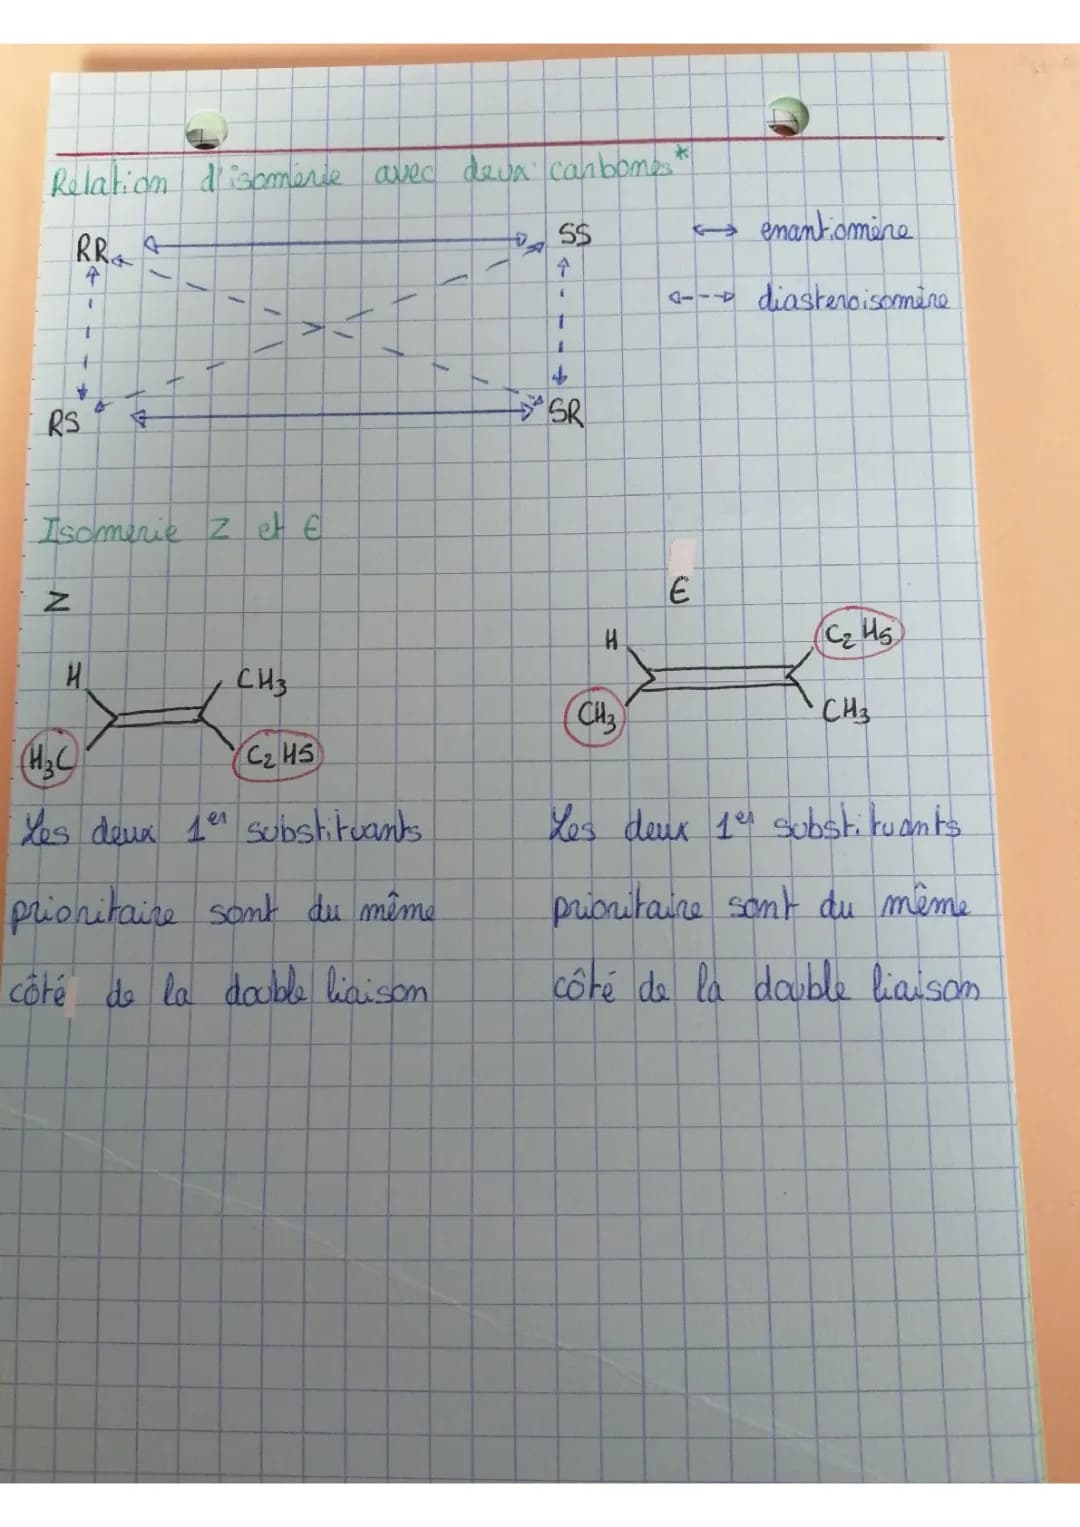 Relation d'isomérie avec deux carbones*
RR SS ↔ enantiomère
diasteroisomère
RS SR
Isomerie Z et E
Z E
H CH3 H C2H5
H3C C2H5 CH3 CH3
Les deux 1er substituants Les deux 1er substituants
prioritaire sont du même prioritaire sont du même
côté de la double liaison côté de la double liaison